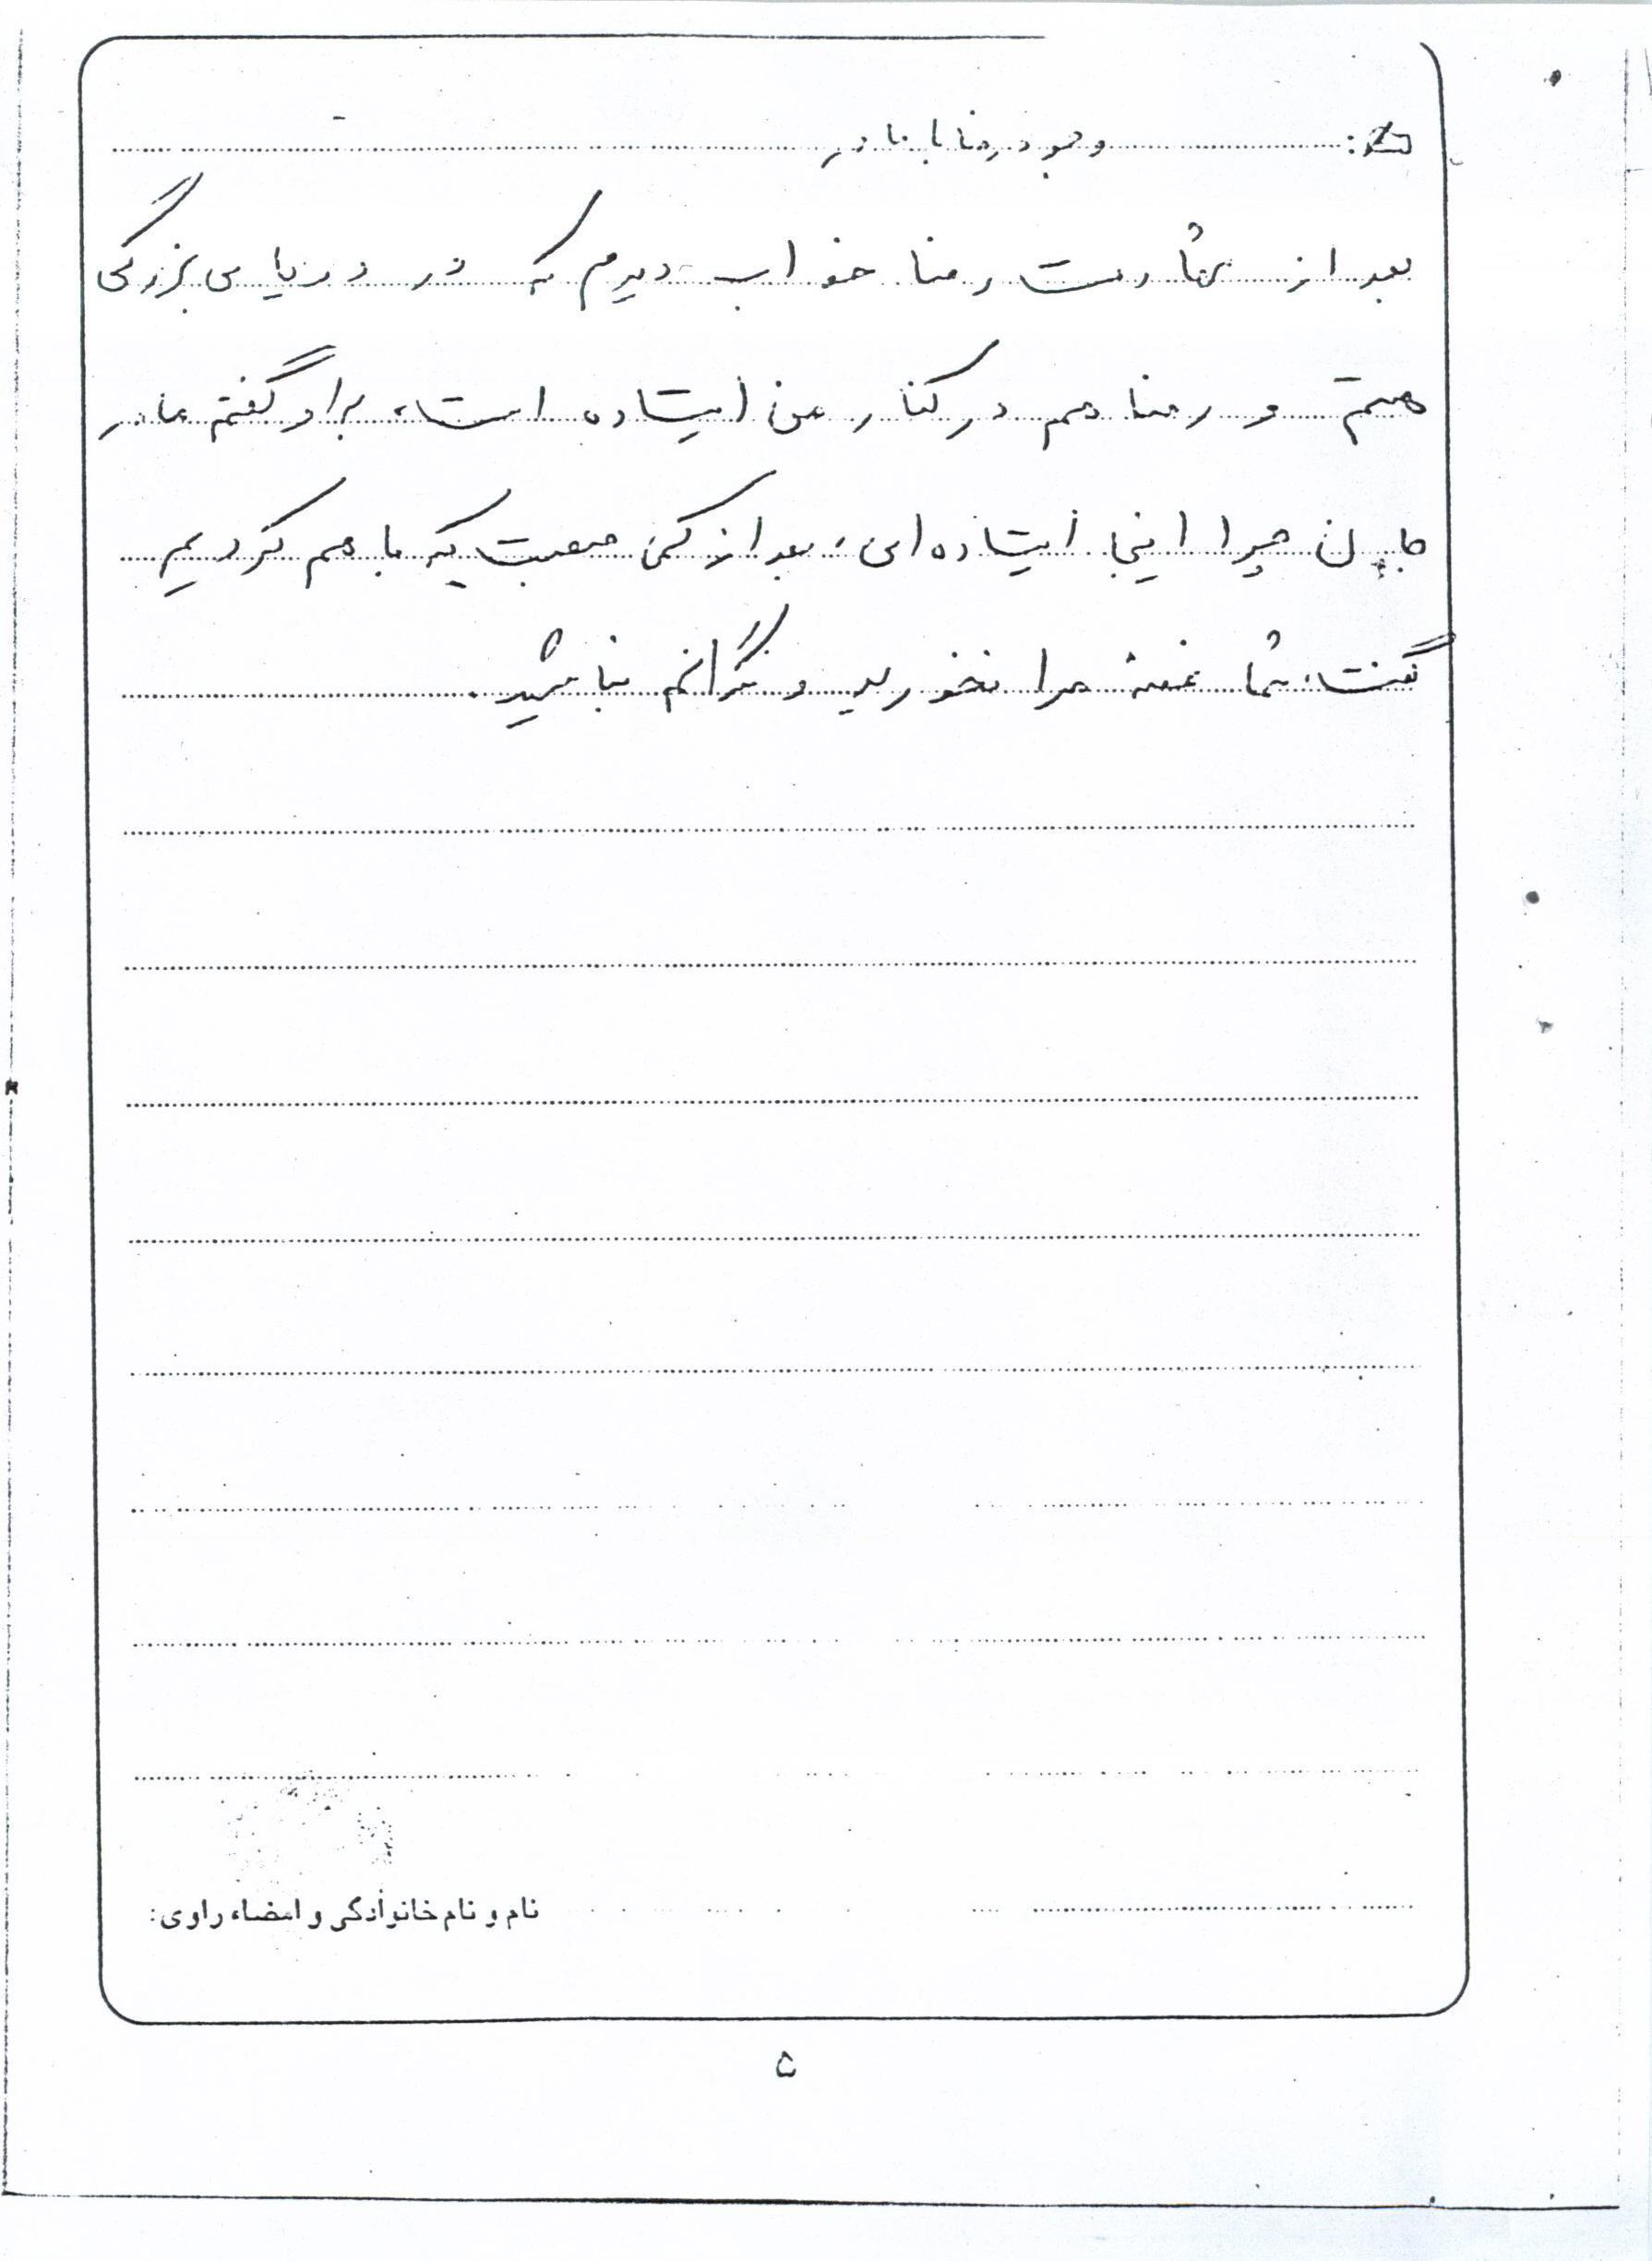 وجود رضا با مادر
بعد از شهادت رضا خواب دیدم که در دریای بزرگی
هستم و رضا هم در کنار من ایستاده است، براو گفتم مادر
جان چرا اینجا ایستاده‌ای، بعد از کمی صحبت که با هم کردیم
گفت، شما غصه مرا نخورید و نگرانم نباشید.
نام و نام خانوادگی و امضاء راوی:
۵